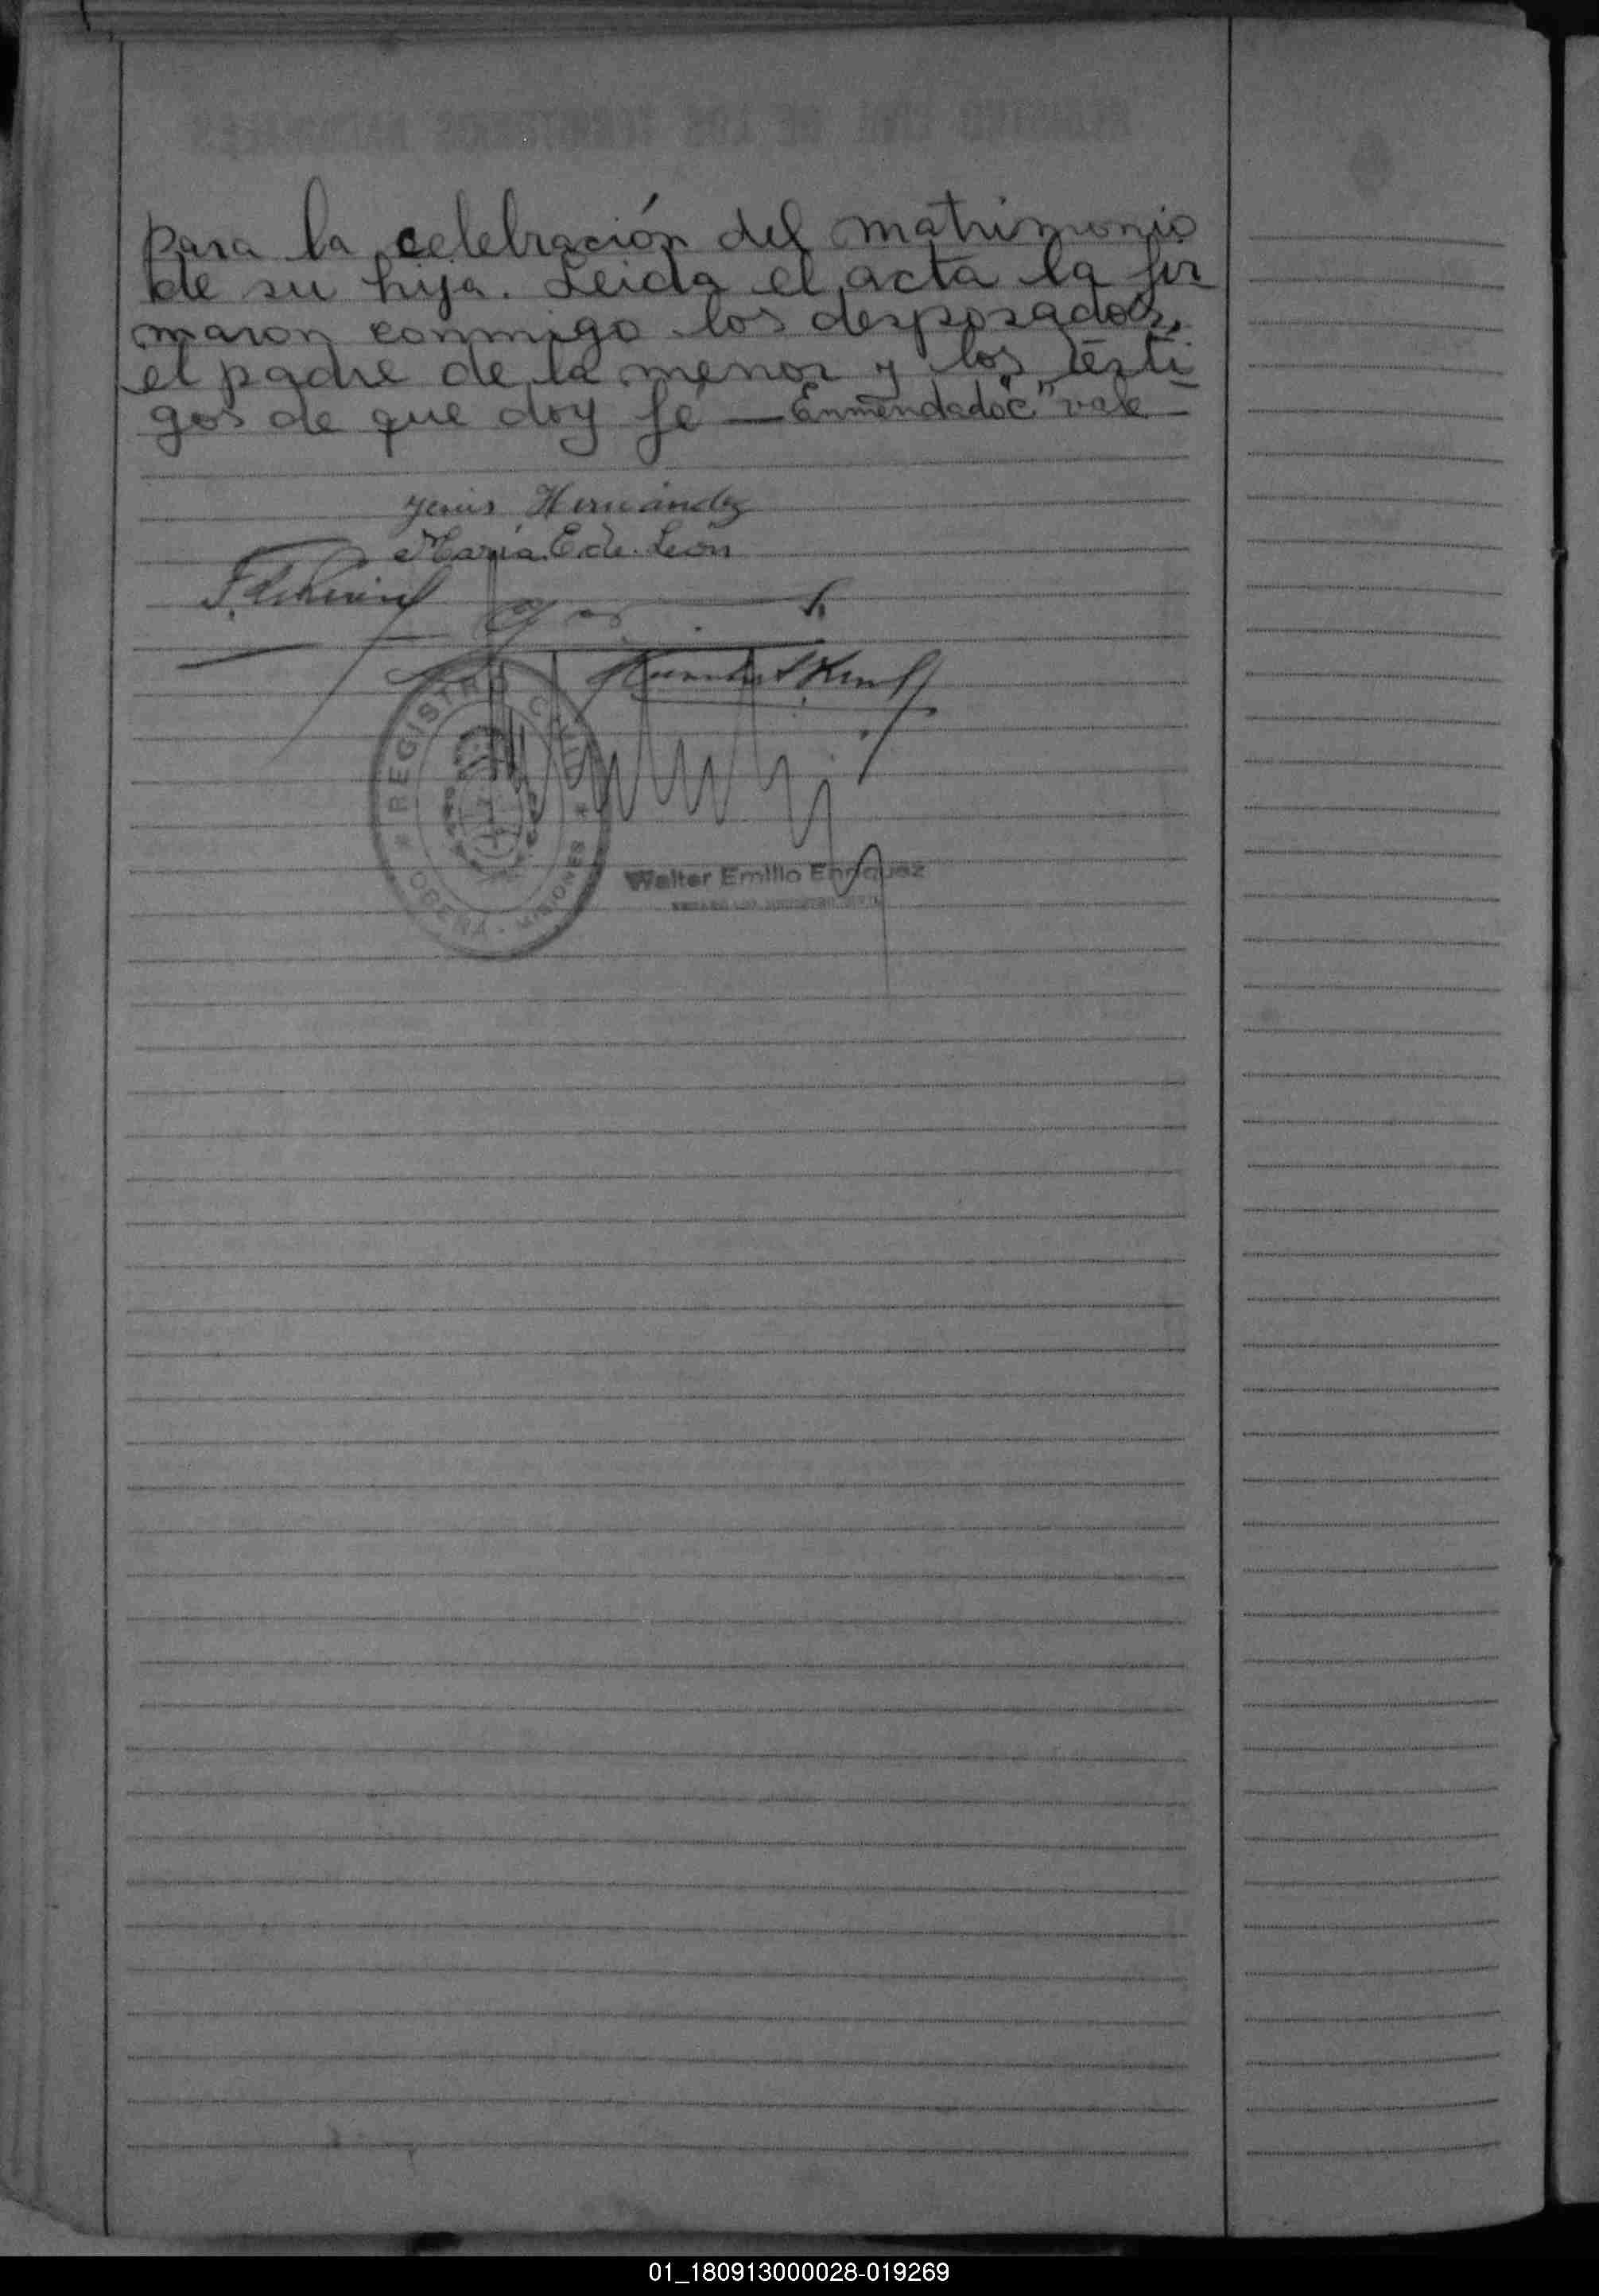 para la celebración del matrimonio
de su hija. Leida el acta la fir
maron conmigo los desposados,
el padre de la menor y los testi
gos de que doy fé — Enmendado "c" vale —
Jesús Hernández
María E. de León
REGISTRO CIVIL
OBERA - MISIONES
Walter Emilio Enriquez
01_180913000028-019269